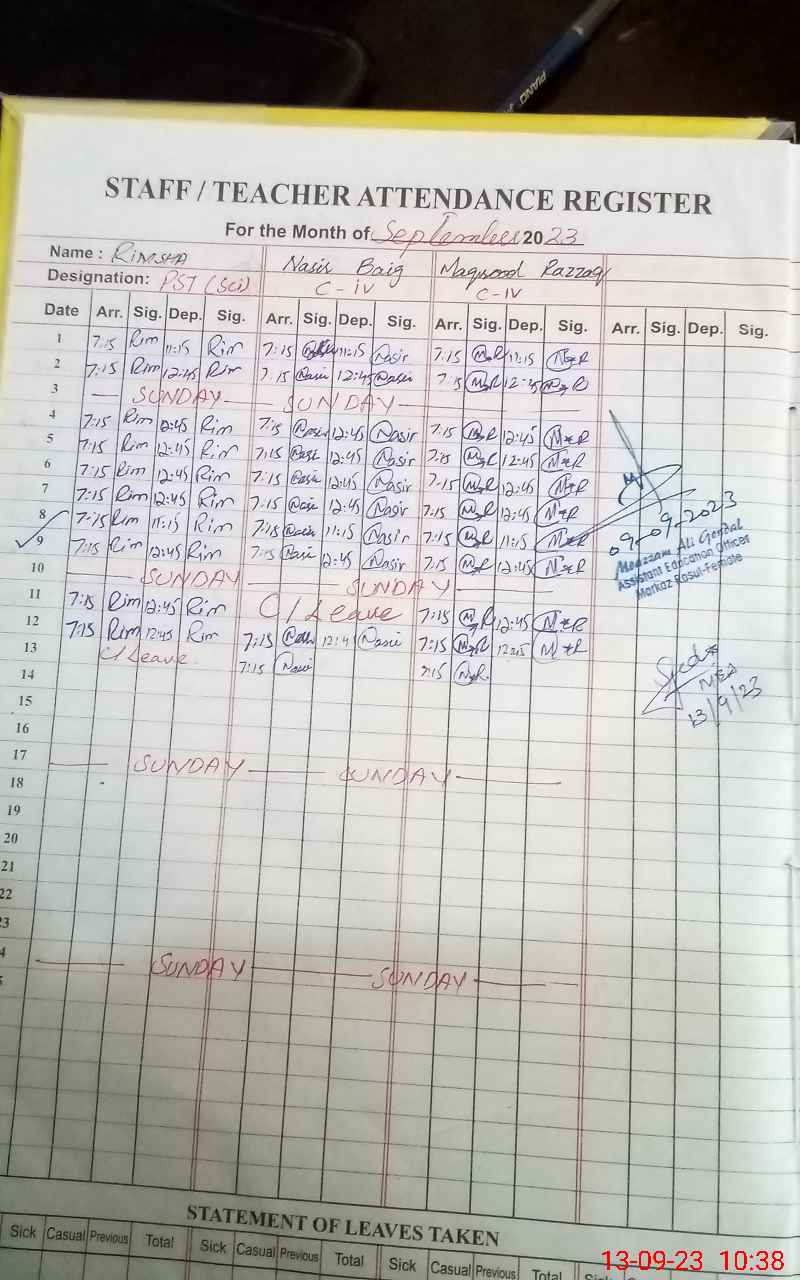 PIANO
STAFF / TEACHER ATTENDANCE REGISTER
For the Month of September 2023
Name : RIMSHA Nasir Baig Maqsood Razzaq
Designation: PST (Sci) C-iv C-IV
Date Arr. Sig. Dep. Sig. Arr. Sig. Dep. Sig. Arr. Sig. Dep. Sig. Arr. Sig. Dep. Sig.
1 7:15 Rim 11:15 Rim 7:15 11:15 Nasir 7:15 M*R 11:15 M*R
2 7:15 Rim 12:45 Rim 7:15 Nasir 12:45 Nasir 7:15 M*R 12:45 M*R
3 SUNDAY SUNDAY
4 7:15 Rim 12:45 Rim 7:15 Nasir 12:45 Nasir 7:15 M*R 12:45 M*R
5 7:15 Rim 12:45 Rim 7:15 Nasir 12:45 Nasir 7:15 M*R 12:45 M*R
6 7:15 Rim 12:45 Rim 7:15 Nasir 12:45 Nasir 7:15 M*R 12:45 M*R
7 7:15 Rim 12:45 Rim 7:15 Nasir 12:45 Nasir 7:15 M*R 12:45 M*R
8 7:15 Rim 11:15 Rim 7:15 Nasir 11:15 Nasir 7:15 M*R 11:15 M*R
9 7:15 Rim 12:45 Rim 7:15 Nasir 12:45 Nasir 7:15 M*R 12:45 M*R
09-09-2023
Ali
Assistant Education Officer
Markaz Rasul-Female
10 SUNDAY SUNDAY
11 7:15 Rim 12:45 Rim C/Leave 7:15 M*R 12:45 M*R
12 7:15 Rim 12:45 Rim 7:15 12:4 Nasir 7:15 M*R 12:45 M*R
13 C/Leave 7:15 Nasir 7:15 M*R
MEA
13/9/23
14
15
16
17 SUNDAY SUNDAY
18
19
20
21
22
23
4 SUNDAY SUNDAY
5
STATEMENT OF LEAVES TAKEN
Sick Casual Previous Total Sick Casual Previous Total Sick Casual Previous Total Sick
13-09-23 10:38